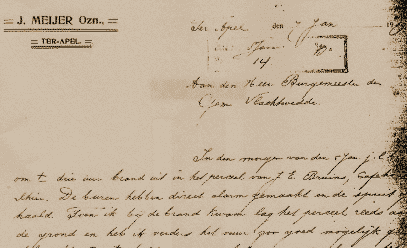 J. MEIJER Ozn.,
TER-APEL.
Ter Apel, den 7 Jan 19
14.
Aan den Heer Burgemeester der
Gem Vlachtwedde.
In den morgen van den Jan. j.l.
om ± drie uur brand uit in het perceel van J. E. Bruins,
De buren hebben direct alarm gemaakt en de
haald. Toen ik bij de brand kwam lag het perceel reeds
de grond en heb ik verders het vuur zoo goed mogelijk